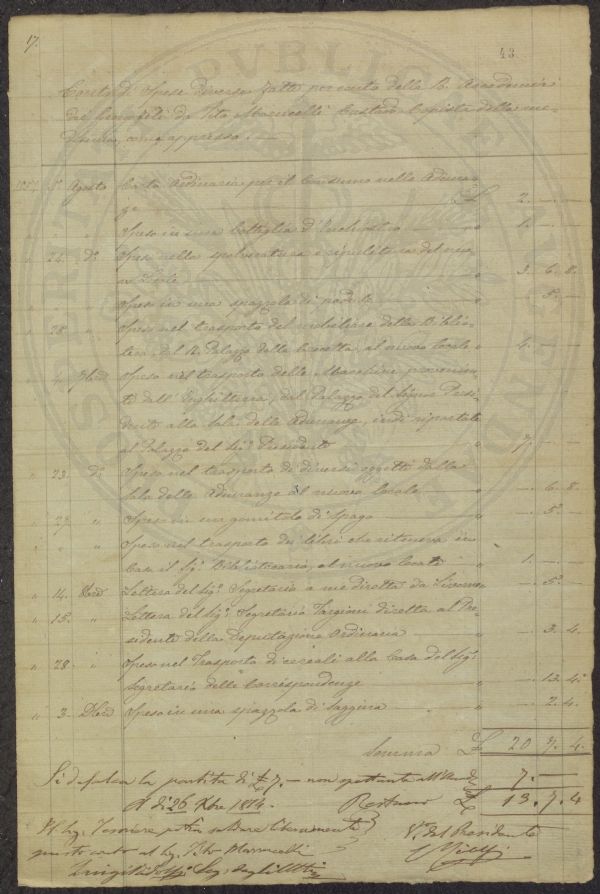 17.
43
Conto di Spese diverse fatte per conto della R. Accademia
dei Georgofili da Vito Marruccelli Custode Copista della me-
desima, come appresso
Agosto Carta Ordinaria per il Consumo nelle Aduna-
£ 2. — —
" Spese in una Bottiglia d'Inchiostro " 1. — —
" 24. Do Spese nella spolveratura e ripulitura del
" 3. 6. 8.
" Spese in una spazzola di padule " —. 5. —
" 28 " Spese nel trasporto del mobiliare della Biblio-
teca, dal R. Palazzo della al nuovo locale " 4. — —
" 4. Spese nel trasporto delle Macchine provenien-
ti dall'Inghilterra, dal Palazzo del Signor Presi-
dente alla Sala delle Adunanze, indi riportate
al Palazzo del Sig. Presidente " 7. — —
" 23. Do Spese nel trasporto di diversi oggetti dalla
Sala delle Adunanze al nuovo locale " —. 6. 8.
" 27. " Spese in un gomitolo di Spago " —. 5. —
" " Spese nel trasporto dei libri che riteneva in
Casa il Sig. Bibliotecario, al nuovo locale " 1. — —
" 14. Lettera del Sig. Segretario a me diretta da Livorno " —. 5. —
" 15. " Lettera del Sig. Segretario Targioni diretta al Pre-
sidente della Deputazione Ordinaria " —. 3. 4.
" 28. " Spese nel Trasporto di cereali alla Casa del Sig.
Segretario delle Corrispondenze " —. 13. 4.
" 3. Spese in una spazzola di Saggina " —. 2. 4.
Somma £ 20. 7. 4.
Si defalca la partita di £ 7. — non spettante all'Accad. 7. —
A di 26 Xbre Restano £ 13. 7. 4
Il Sig. Tesoriere potrà saldare liberamente
questo conto al Sig. Vito Marruccelli
Vo. del Presidente
Luigi Ridolfi Seg. degli Atti
Ridolfi